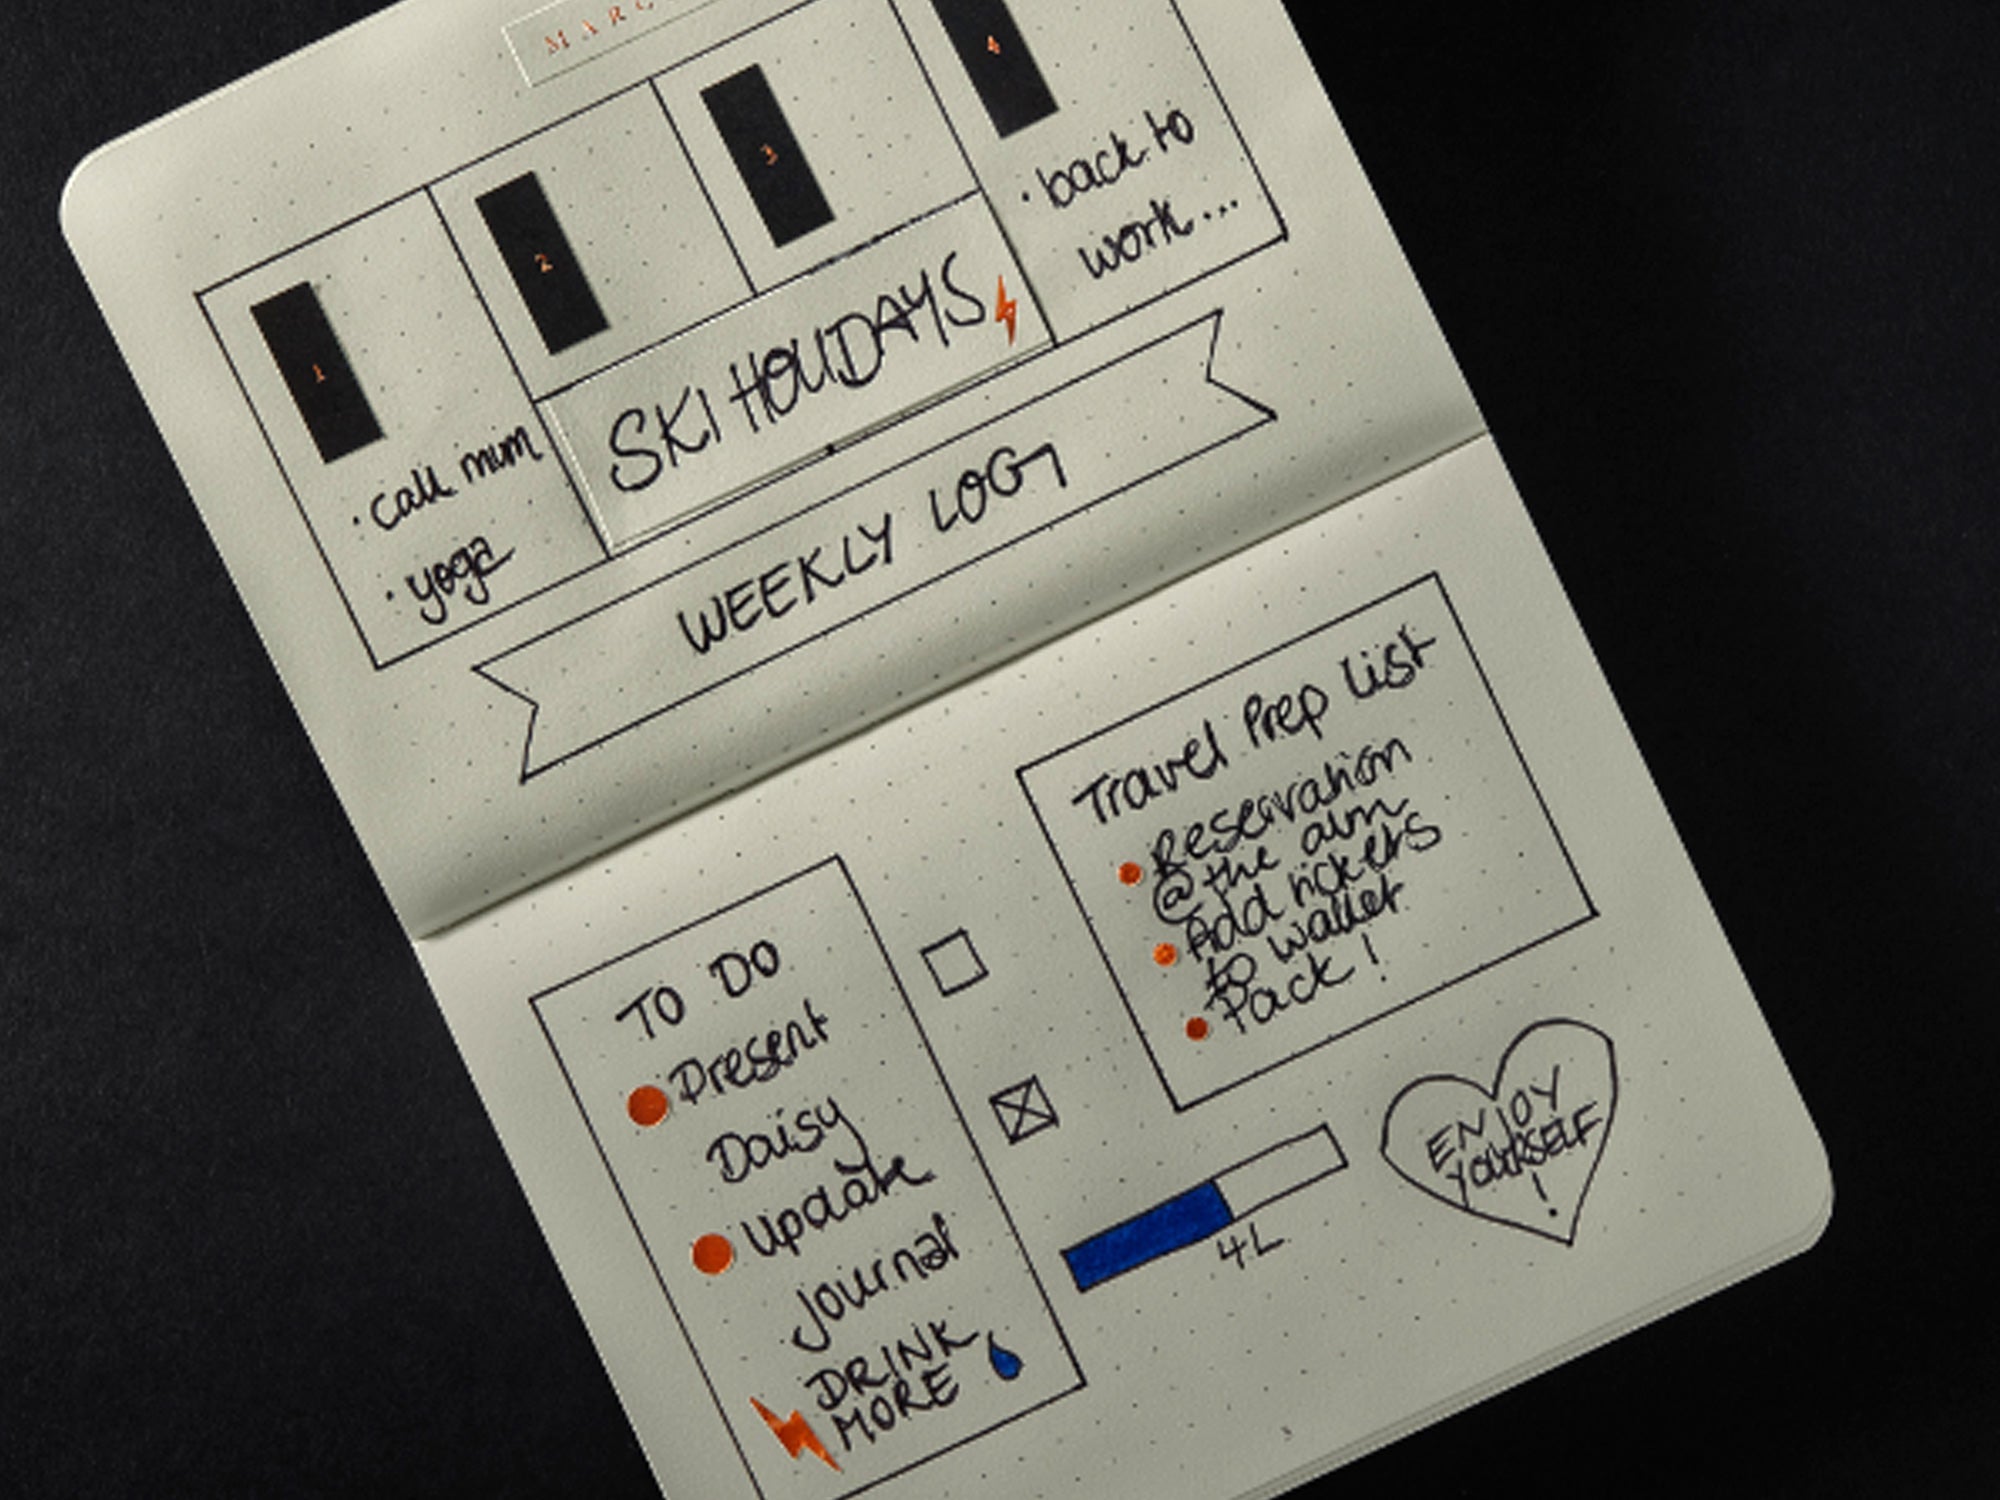 MARC
1
2
3
4
· call mum
· yoga
SKI HOLIDAYS
· back to
work...
WEEKLY LOG
TO DO
Present
Daisy
Update
Journal
DRINK
MORE
Travel Prep List
Reservation
@ the
Add tickets
to wallet
Pack!
4L
ENJOY
YOURSELF
!